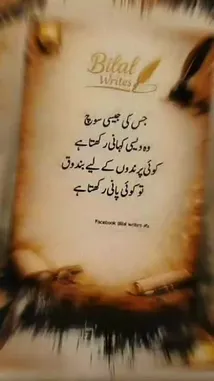 Bilal
Writes
جس کی جیسی سوچ
وہ ویسی کہانی رکھتا ہے
کوئی پرندوں کے لیے بندوق
تو کوئی پانی رکھتا ہے
Facebook Bilal writes